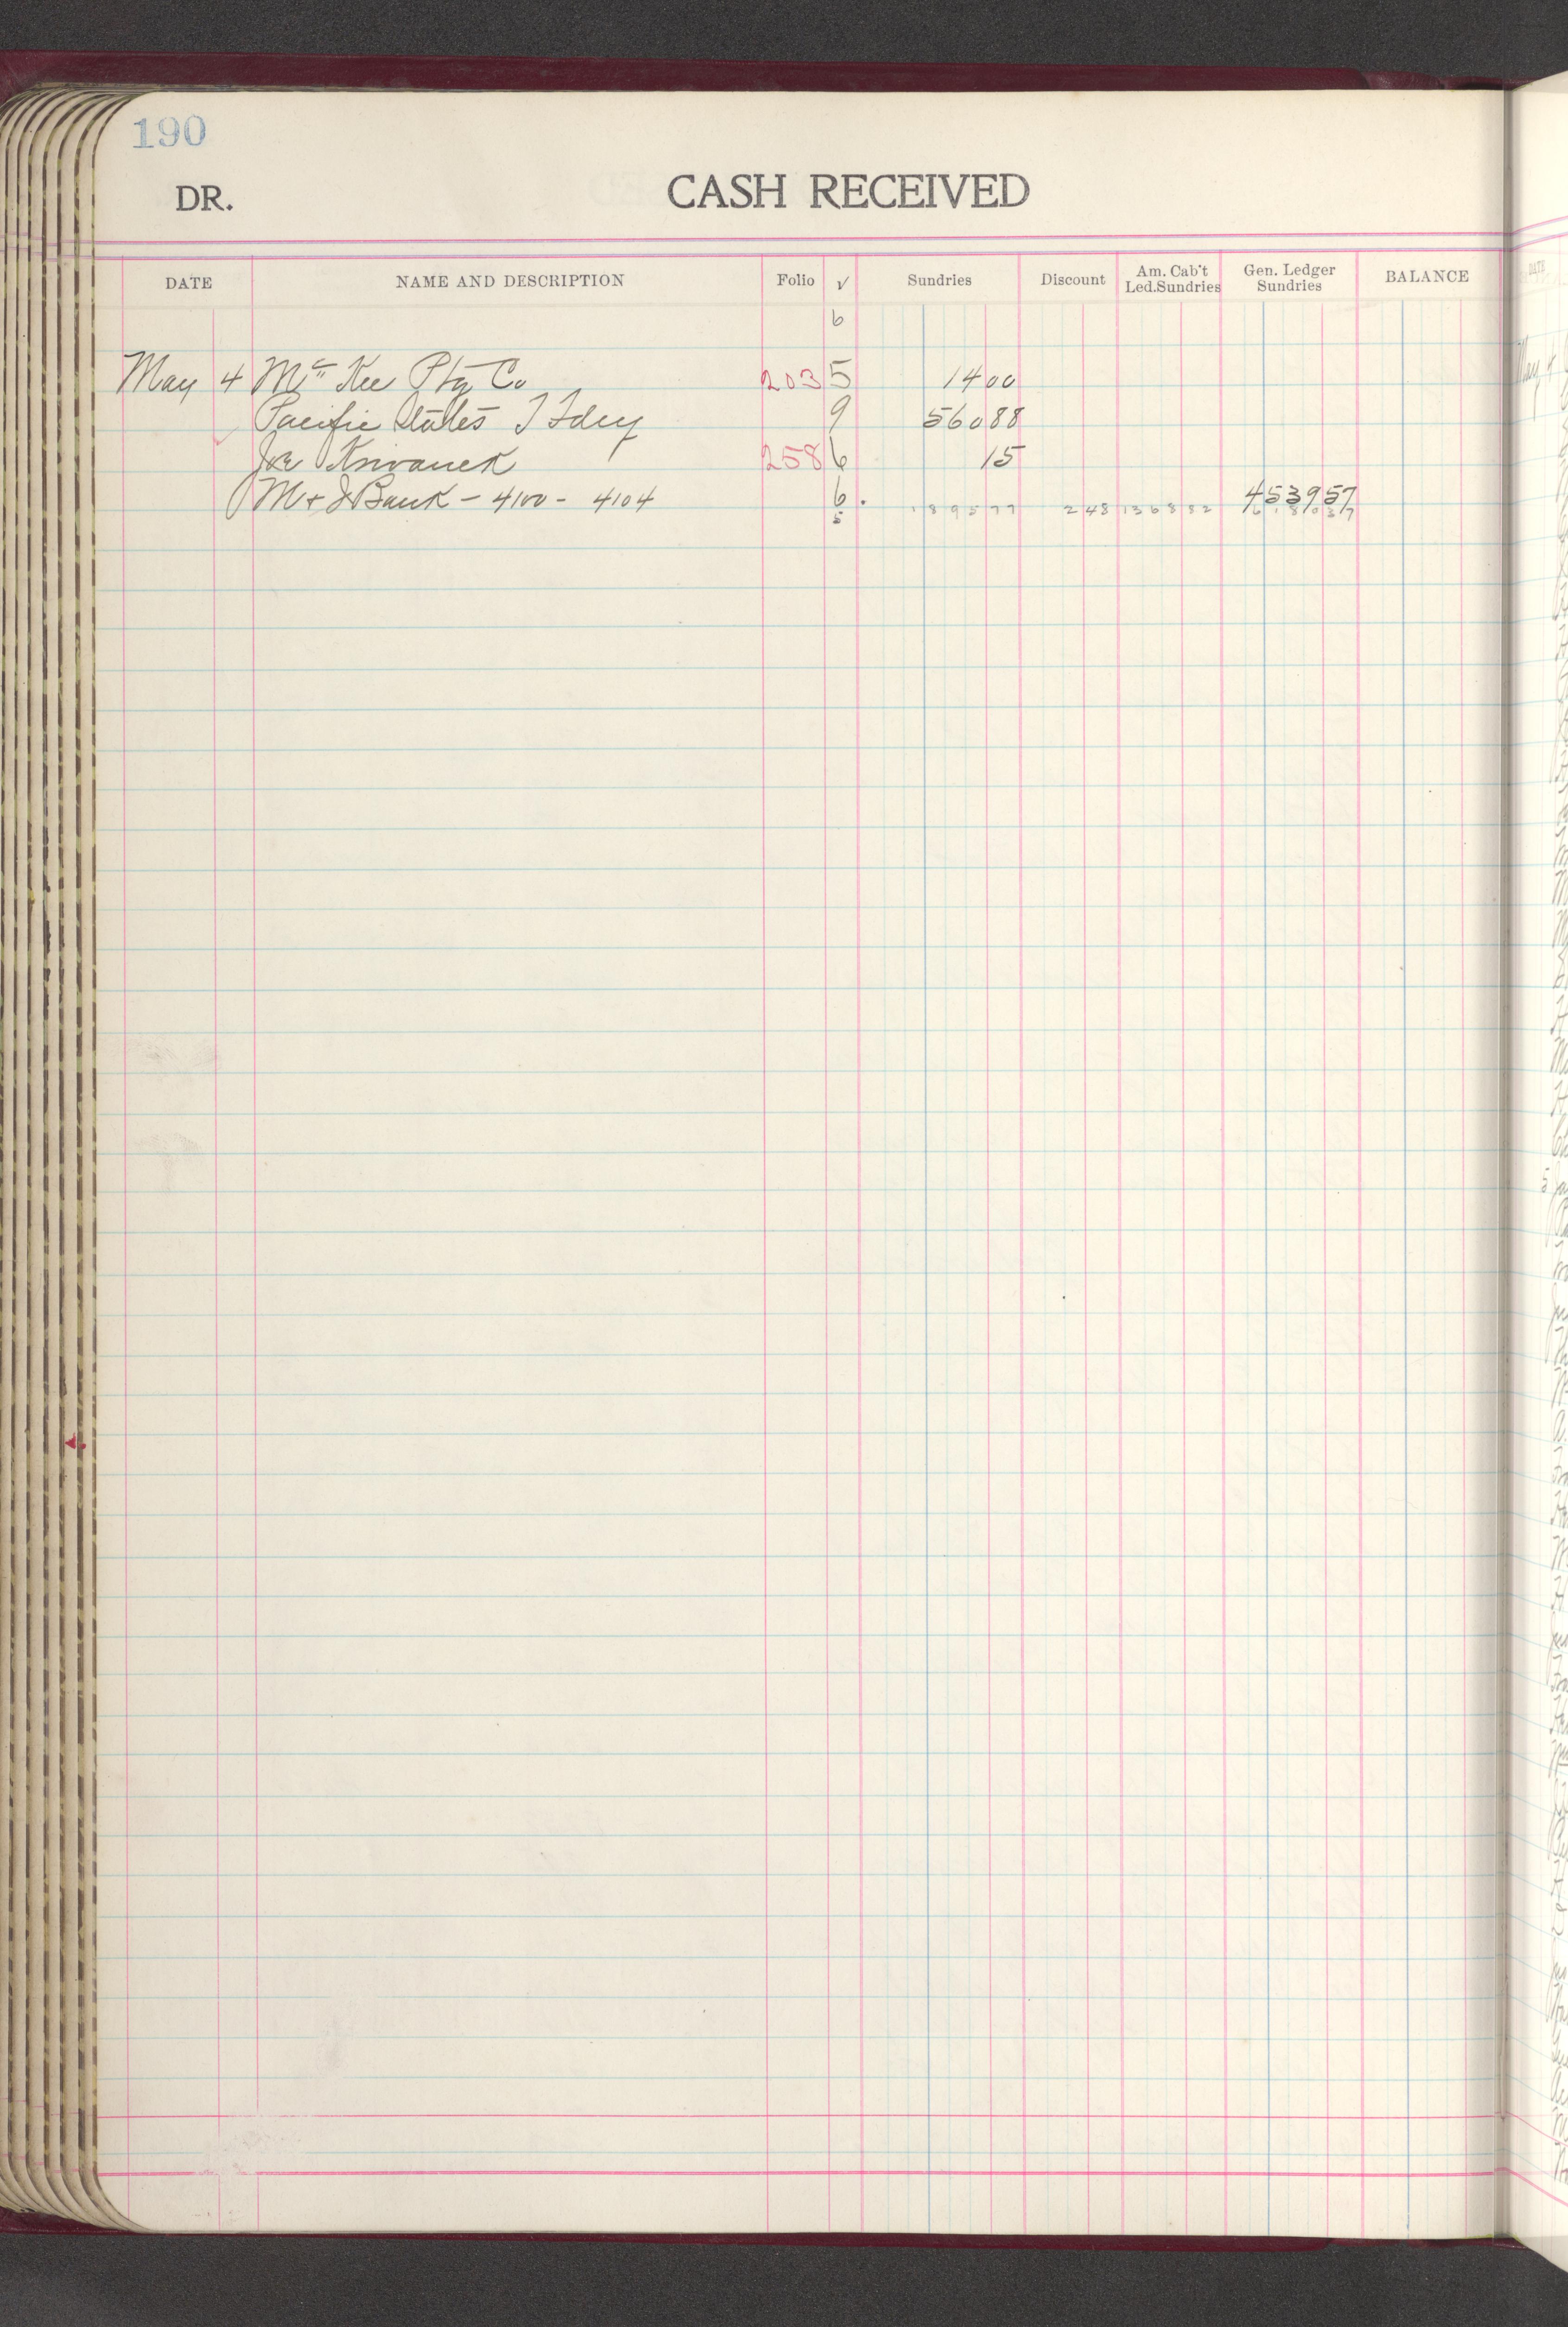 190
DR. CASH RECEIVED
DATE NAME AND DESCRIPTION Folio √ Sundries Discount Am. Cab't Led.Sundries Gen. Ledger Sundries BALANCE
6
May 4 Mc Kee Ptg Co 203 5 14 00
Pacific States T Fdry 9 560 88
Joe Krivanek 258 6 15
M + J Bank – 4100 – 4104 6 4539 57
5 1895 77 2 48 1368 82